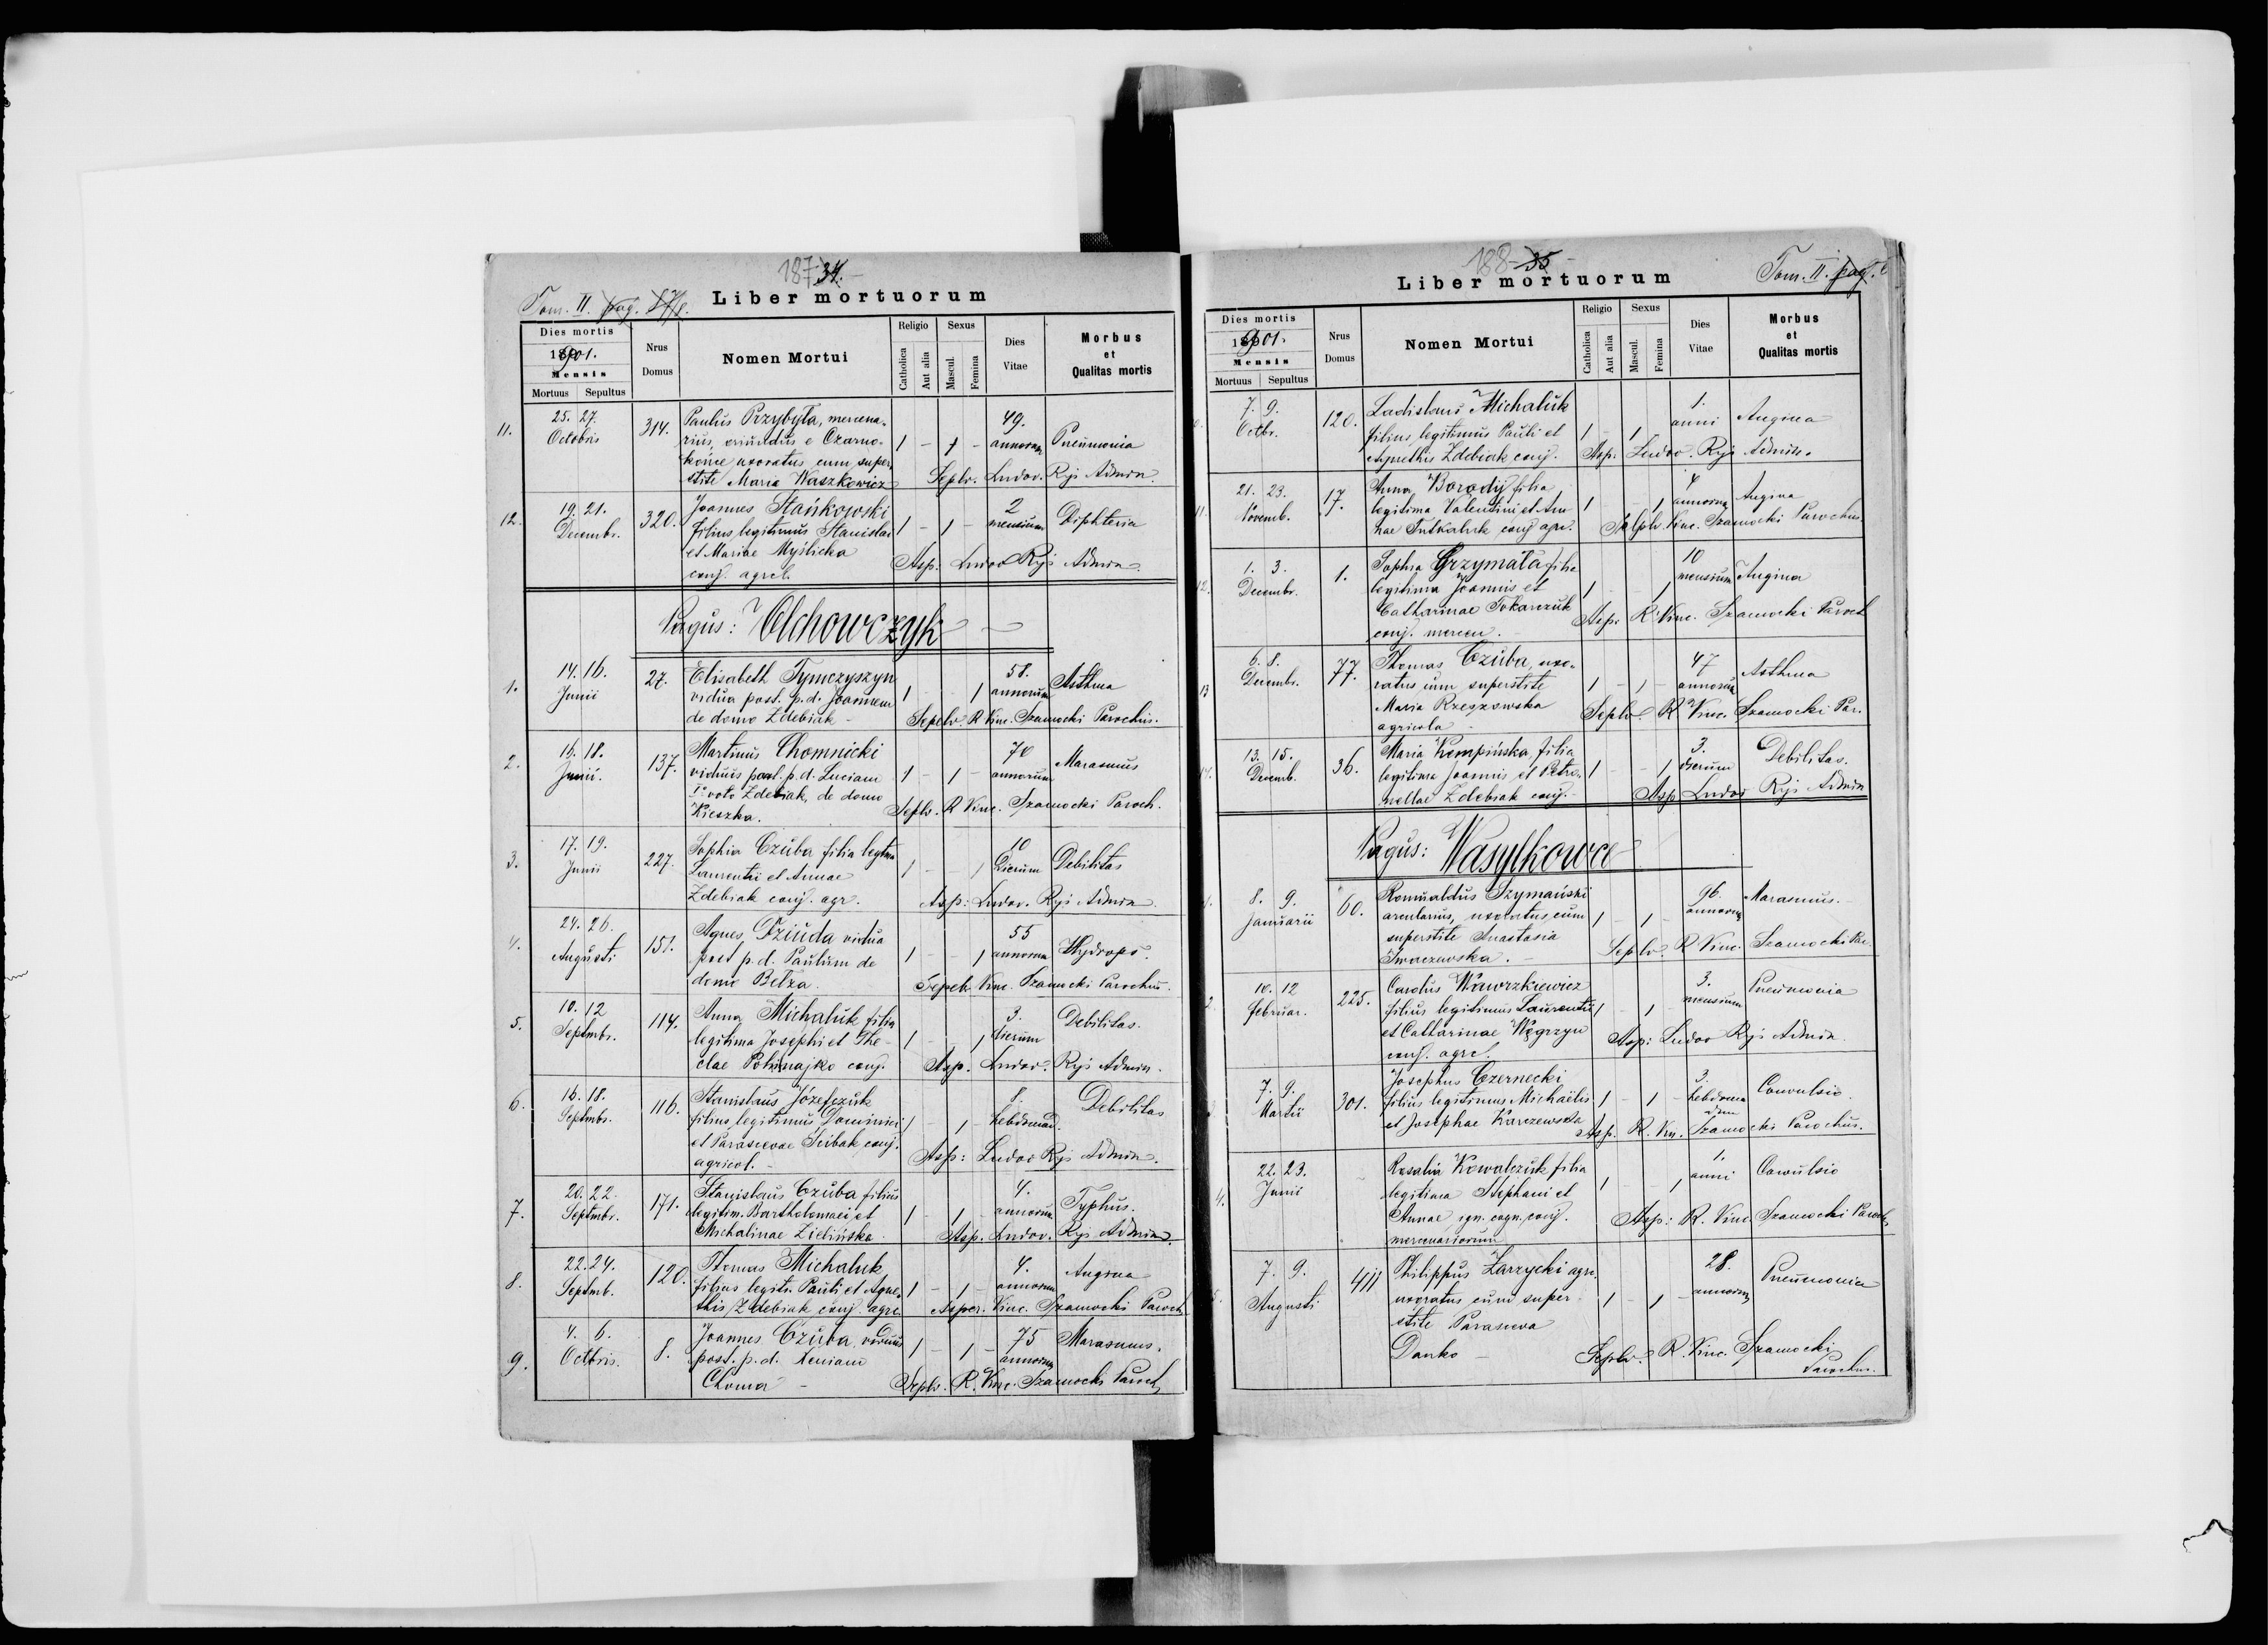 187 34.
Tom. II. pag. 87/8.
Liber mortuorum
Dies mortis
1901.
Mensis
Mortuus Sepultus
Nrus
Domus
Nomen Mortui
Religio
Catholica
Aut alia
Sexus
Mascul.
Femina
Dies
Vitae
Morbus
et
Qualitas mortis
11. 25. 27. 314. Paulus Przybyła, mercena- 49.
Octobris rius, oriundus e Czarno- 1 - 1 - annorum Pneumonia
końce uxoratus cum super-
stite Maria Waszkowicz Seplv. Ludov. Ryś Admin.
12. 19. 21. 320. Joannes Stańkowski 2
Decembr. filius legitimus Stanislai 1 - 1 - mensium Diphteria
et Mariae Myślicka Asp. Ludov Ryś Admin.
conj. agrcl.
Pagus: Olchowczyk
1. 14. 16. 27. Elisabeth Tymczyszyn 58.
Junii vidua post. p. d. Joannem 1 - - 1 annorum Asthma
de domo Zdebiak - Sepelv. R Vinc. Szamocki Parochus.
2. 16. 18. 137. Martinus Chomnicki 70
Junii. viduus post. p. d. Luciam 1 - 1 - annorum Marasmus
Iº voto Zdebiak, de domo
Kieszka. Seplv. R Vinc. Szamocki Paroch.
3. 17. 19. 227. Sophia Czuba filia legtma 10
Junii Laurentii et Annae 1 - - 1 dierum Debilitas
Zdebiak conj. agr. Asp: Ludov. Ryś Admin.
4. 24. 26. 151. Agnes Dziuda vidua 55
Augusti post p. d. Paulum de 1 - - 1 annorum Hydrops.
domo Bełza. Sepelv Vinc. Szamocki Parochus.
5. 10. 12 114. Anna Michaluk filia 3. Debilitas.
Septmbr. legitima Josephi et The- 1 - - 1 dierum
clae conj. Asp. Ludov. Ryś Admin.
6. 16. 18. 116. Stanislaus Józefczuk 8. Debilitas
Septmbr. filius legitimus Dominici 1 - 1 - hebdomad.
et Parascevae conj.
agricol. - Asp: Ludov Ryś Admin.
7. 20. 22. 171. Stanislaus Czuba filius 4.
Septmbr. legitim. Bartholomaei et 1 - 1 - annorum Typhus.
Michalinae Zielińska. Asp. Ludov. Ryś Admin.
8. 22. 24. 120. Thomas Michaluk 4. Angina
Septmb. filius legit. Pauli et Agne- 1 - 1 - annorum
this Zdebiak conj. agr. Asper. Vinc. Szamocki Paroch
9. 4. 6. 8. Joannes Czuba, viduus 75 Marasmus.
Octbris. post. p. d. Xeniam 1 - 1 - annorum
Choma - Seplv. R. Vinc. Szamocki Paroch
188 35
Liber mortuorum
Tom. II. pag.
Dies mortis
1901.
Mensis
Mortuus Sepultus
Nrus
Domus
Nomen Mortui
Religio
Catholica
Aut alia
Sexus
Mascul.
Femina
Dies
Vitae
Morbus
et
Qualitas mortis
7. 9. 120. Ladislaus Michaluk 1.
Octbr. filius legitimus Pauli et 1 - 1 - anni Angina
Agnethis Zdebiak conj. Asp: Ludov. Ryś Admin.
11. 21. 23. 17. Anna Borodij filia 4 Angina
Novemb. legitima Valentini et An- 1 - - 1 annorum
nae conj agr. Seplv Vinc. Szamocki Parochus
12. 1. 3. 1. Sophia Grzymała filia 10
Decembr. legitima Joannis et 1 - - 1 mensium Angina
Catharinae Tokarczuk Asp. R Vinc. Szamocki Paroch
conj. mercen. -
13 6. 8. 77. Thomas Czuba, uxo- 47
Decembr. ratus cum superstite 1 - 1 - annorum Asthma
Maria Rzeszowska Seplv. R Vinc. Szamocki Par.
agricola -
14. 13. 15. 36. Maria Kempińska, filia 3. Debilitas.
Decemb. legitima Joannis et Petro- 1 - - 1 dierum
nellae Zdebiak conj. - Asp Ludov Ryś Admin
Pagus: Wasylkowce
1. 8. 9. 60. Romualdus Szymański 96. Marasmus.
Januarii arcularius, uxoratus cum 1 - 1 - annorum
superstite Anastasia
Seplv. R Vinc. Szamocki Par.
2. 10. 12 225. Carolus Wawrzkiewicz 3. Pneumonia
Februar. filius legitimus Laurentii 1 - 1 - mensium
et Catharinae Węgrzyn Asp: Ludov Ryś Admin.
conj. agrcl.
3 7. 9. 301. Josephus Czernecki 3.
Martii filius legitimus Michaëlis 1 - 1 - hebdoma Convulsio.
et Josephae Karczewska Asp. R. Vin. Szamocki Parochus.
4. 22. 23. Rosalia Kowalczuk filia 1.
Junii legitima Stephani et 1 - - 1 anni Convulsio
Annae ign. cogn. conj. Asp: R. Vinc. Szamocki Paroch.
mercenariorum
5. 7. 9. 411 Philippus Zarzycki agr. 28. Pneumonia
Augusti uxoratus cum super- 1 - 1 - annorum
stite Parasceva
Danko - Seplv. R. Vinc. Szamocki
Parochus.